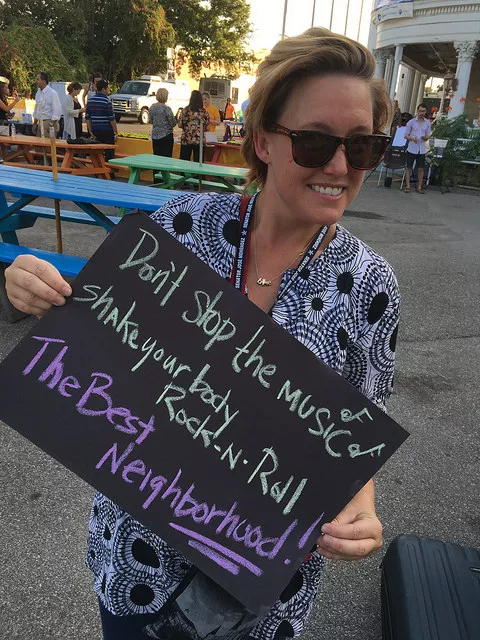 Don't stop the MUSIC of
shake your body or
Rock-N-Roll
The Best
Neighborhood!